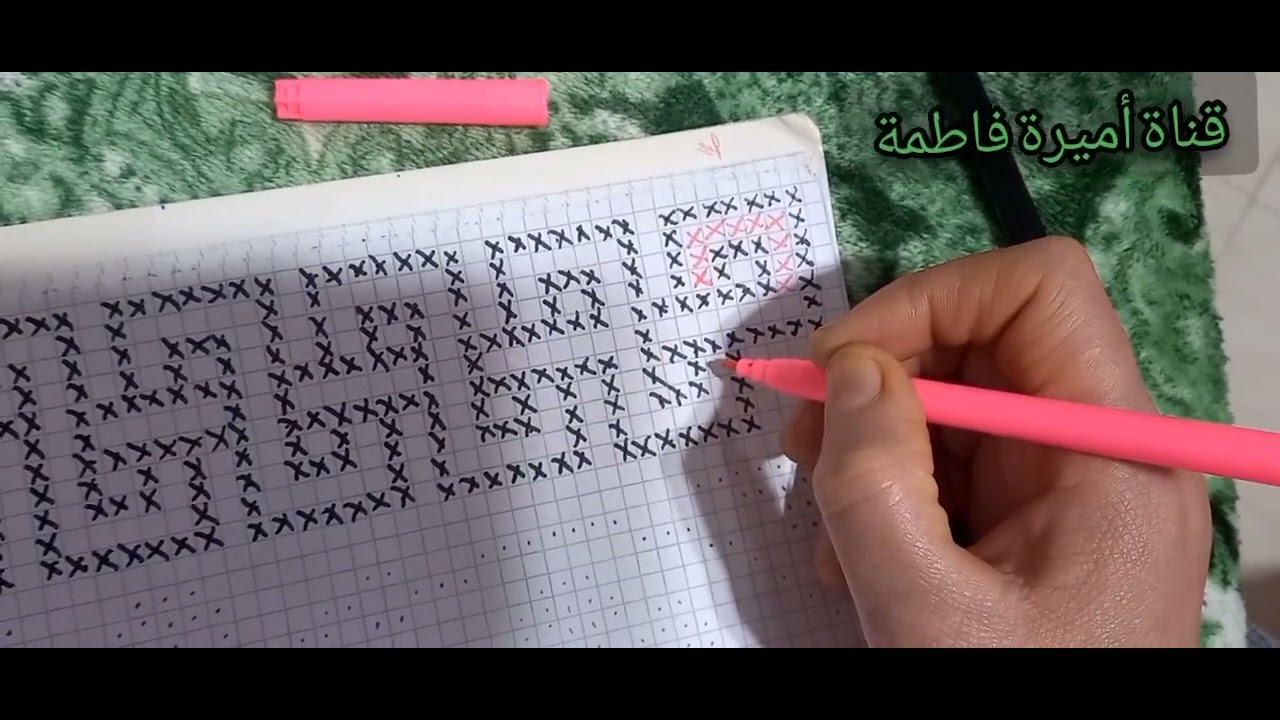 قناة أميرة فاطمة